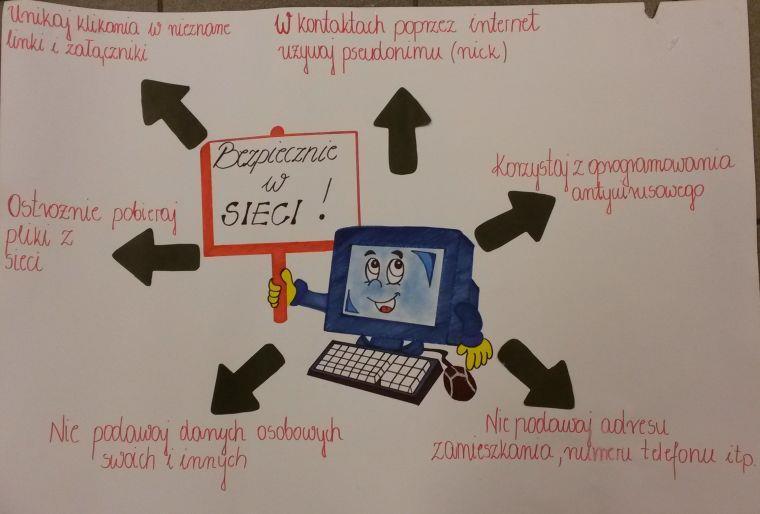 Unikaj klikania w nieznane
linki i załączniki
W kontaktach poprzez internet
używaj pseudonimu (nick)
Bezpiecznie
w
SIECI !
Korzystaj z oprogramowania
antywirusowego
Ostrożnie pobieraj
pliki z
sieci
Nie podawaj danych osobowych
swoich i innych
Nie podawaj adresu
zamieszkania, numeru telefonu itp.